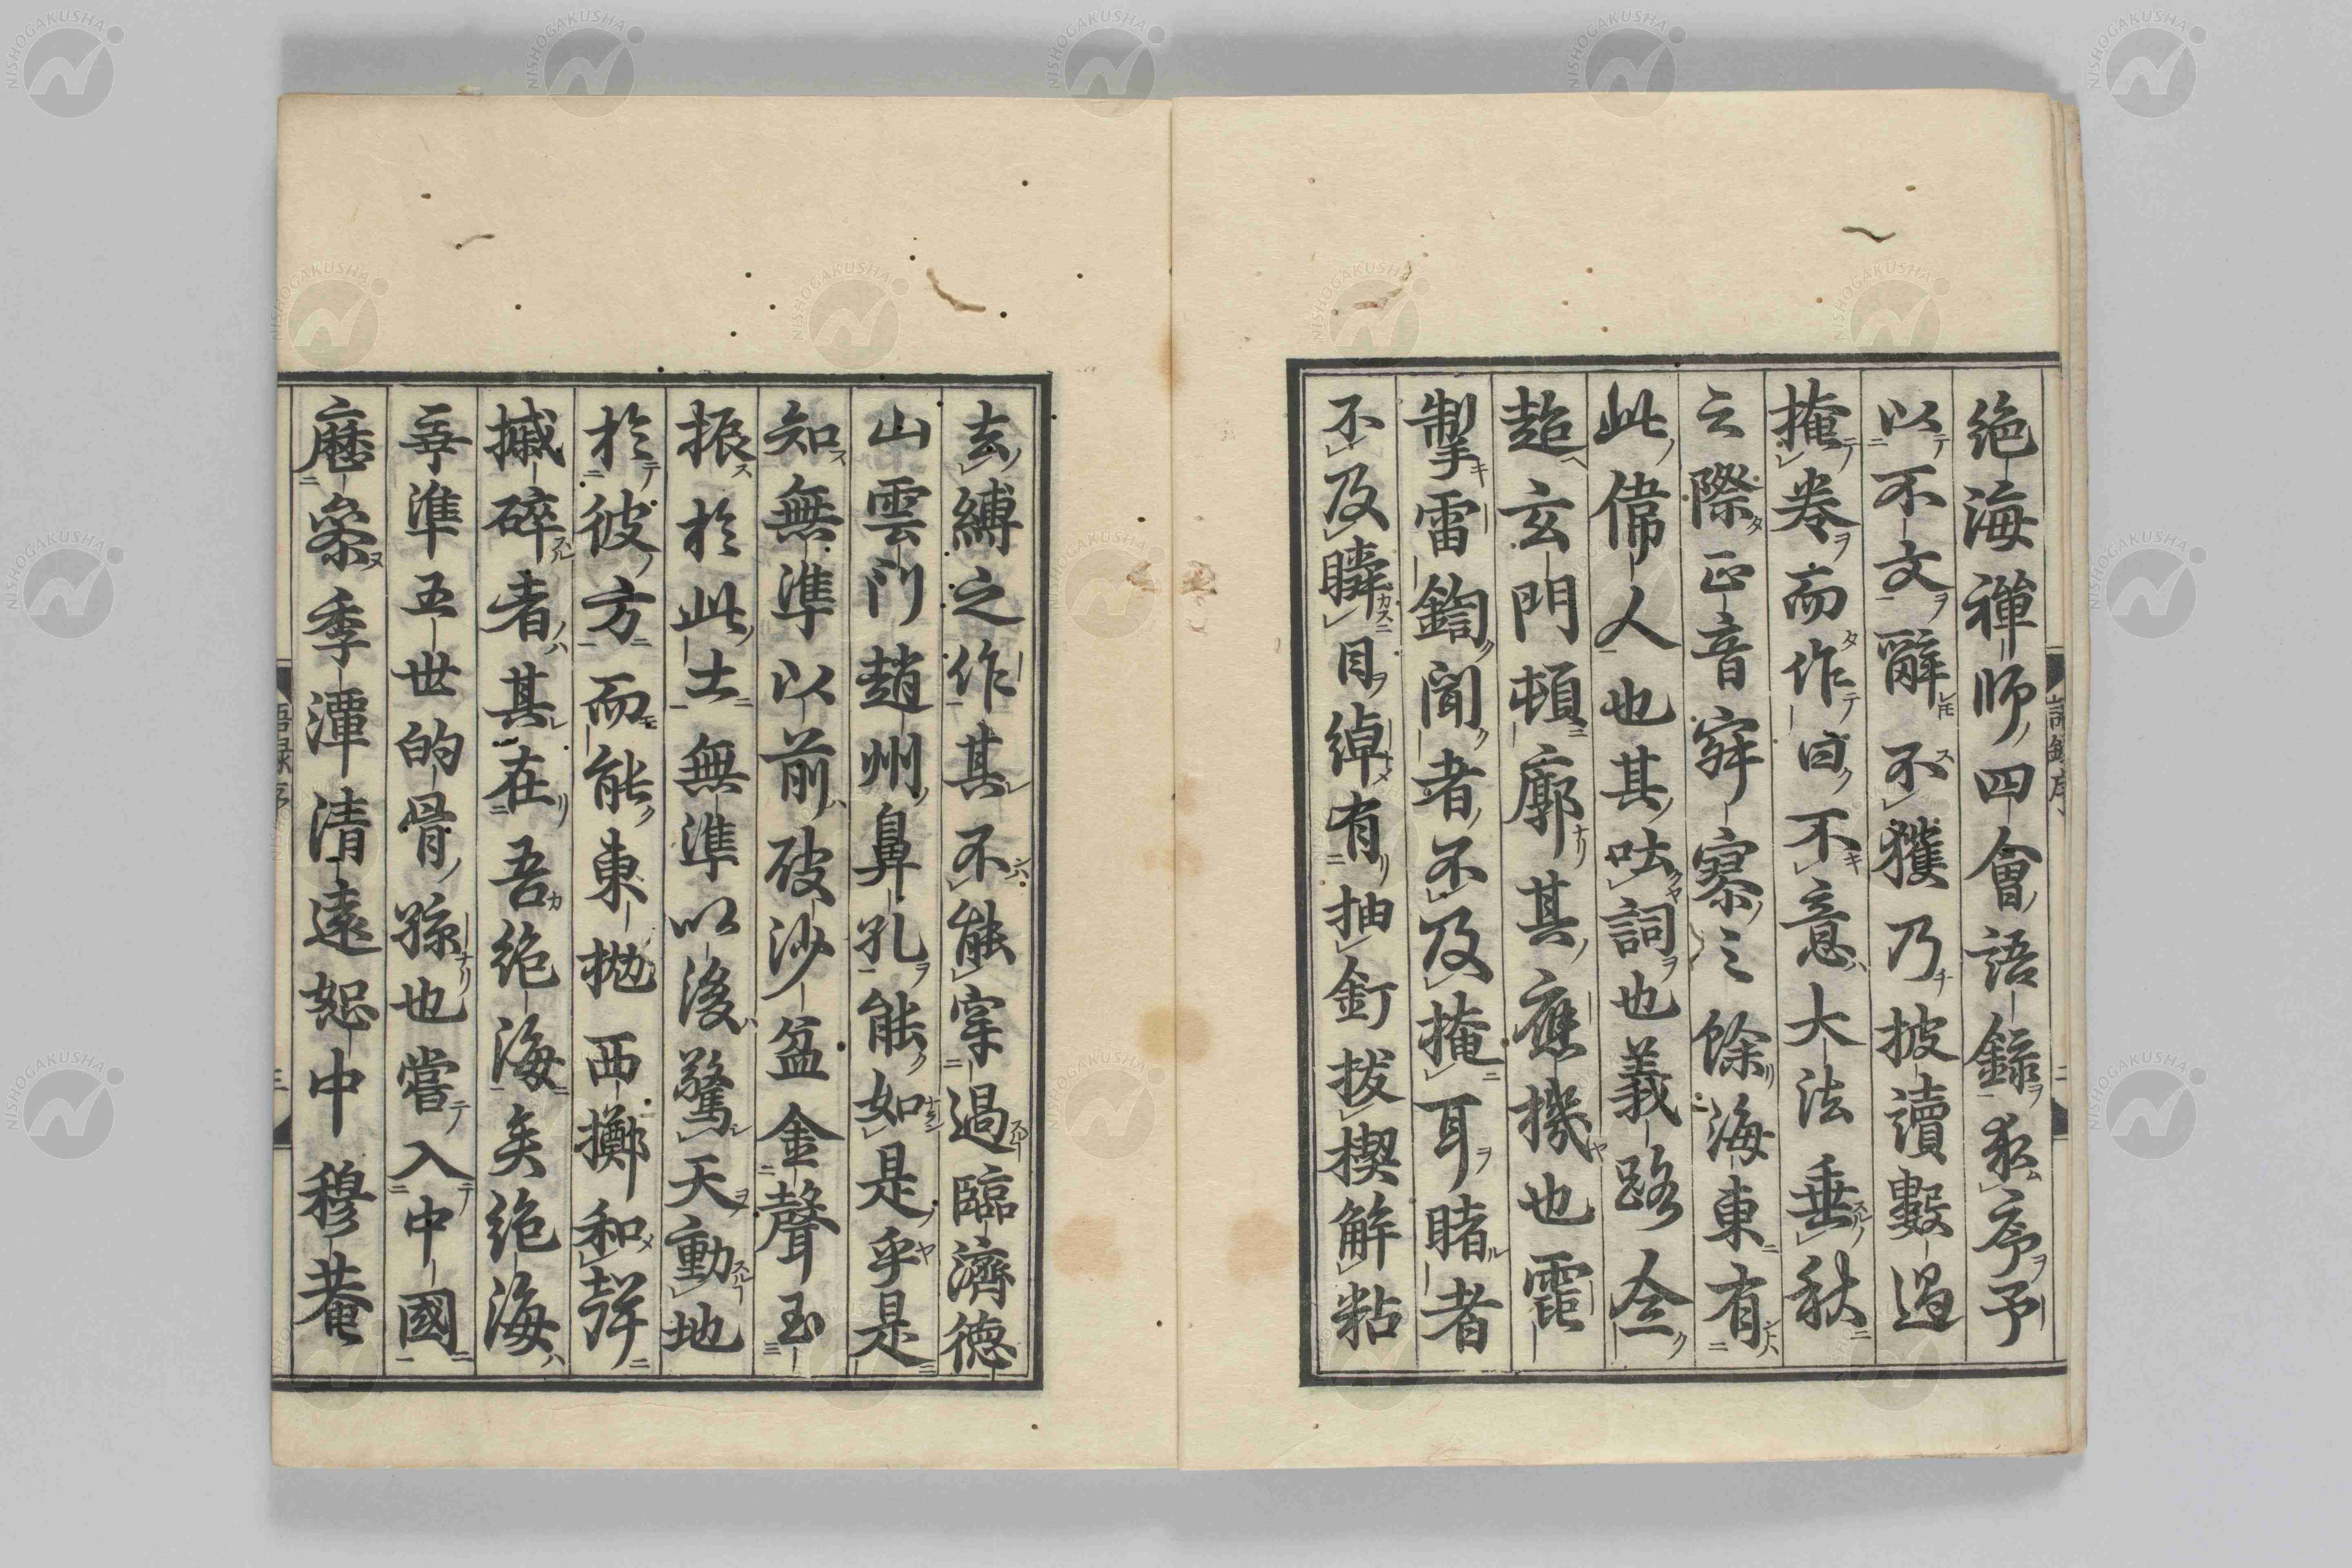 絶海禪師四會語録求序予
以不文辭不獲乃披讀數過
掩卷而作曰不意大法垂秋
之際正音寥寥之餘海東有
此偉人也其吐詞也義路僉
超玄門頓廓其應機也霆
掣雷鍧聞者不及掩耳睹者
不及瞬目綽有抽釘拔楔解粘
去縛之作其不能穿過臨濟德
山雲門趙州鼻孔能如是乎是
知無準以前破沙盆金聲玉
振於此土無準以後驚天動地
於彼方而能東拋西擲和聲
撼碎者其在吾絶海矣絶海
無準五世的骨孫也嘗入中國
歷參季潭清遠恕中穆菴
語録序
二
語録序
三
NISHOGAKUSHA